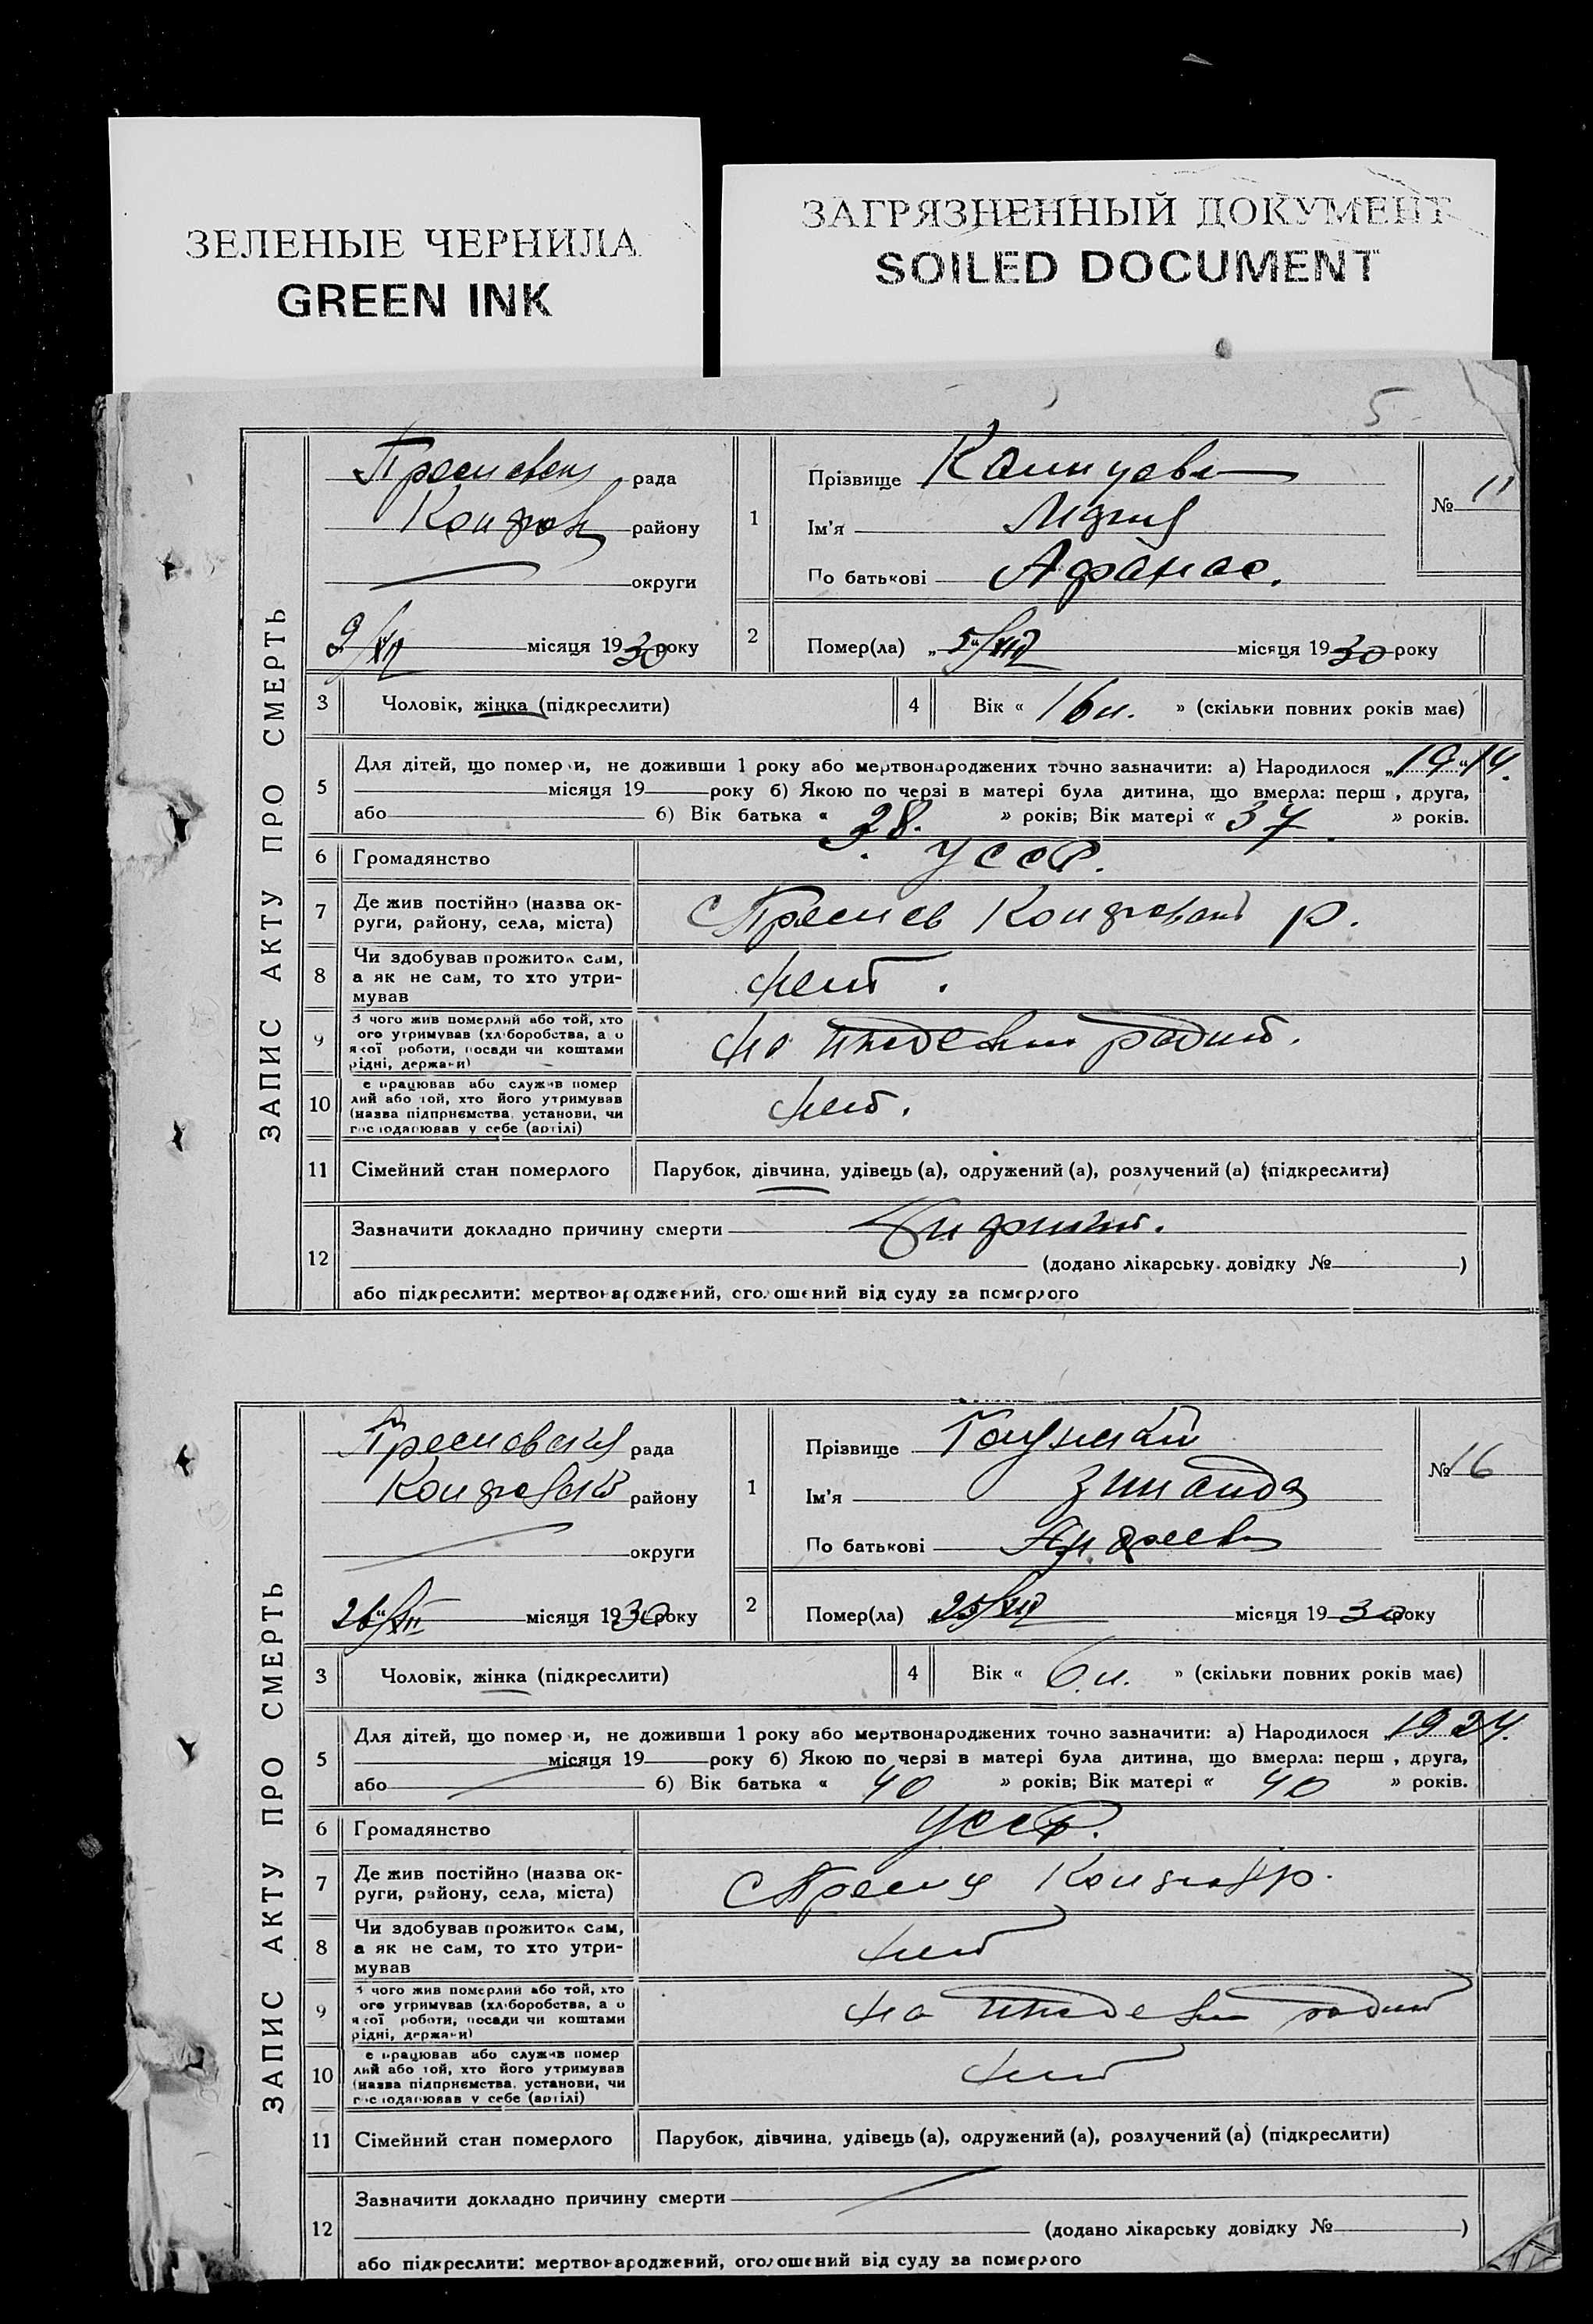 ЗЕЛЕНЫЕ ЧЕРНИЛА
GREEN INK
ЗАГРЯЗНЕННЫЙ ДОКУМЕНТ
SOILED DOCUMENT
5
ЗАПИС АКТУ ПРО СМЕРТЬ
рада
району
округи
9/XII місяця 1930 року
1
Прізвище
Ім'я
По батькові Афанас.
№ 11
2
Помер(ла) „5“/XII місяця 1930 року
3 Чоловік, жінка (підкреслити)
4 Вік « 16 л. » (скільки повних років має)
5
Для дітей, що померли, не доживши 1 року або мертвонароджених точно зазначити: а) Народилося „1914.
місяця 19 року б) Якою по черзі в матері була дитина, що вмерла: перш , друга,
або б) Вік батька « 38. » років; Вік матері « 37 » років.
6 Громадянство УССР.
7 Де жив постійно (назва ок-
руги, району, села, міста)
р.
8 Чи здобував прожиток сам,
а як не сам, то хто утри-
мував
нет.
9 З чого жив померлий або той, хто
ого утримував (хліборобства, а о
якої роботи, посади чи коштами
рідні, держави)
на
10 е працював або служив помер
лий або той, хто його утримував
(назва підприємства, установи, чи
господарював у себе (артілі)
нет.
11 Сімейний стан померлого Парубок, дівчина, удівець (а), одружений (а), розлучений (а) (підкреслити)
12
Зазначити докладно причину смерти
(додано лікарську довідку № )
або підкреслити: мертвонароджений, оголошений від суду за померлого
ЗАПИС АКТУ ПРО СМЕРТЬ
рада
району
округи
26/XII місяця 1930 року
1
Прізвище
Ім'я Зинаида
По батькові Андреевн
№ 16
2
Помер(ла) 25/XII місяця 1930 року
3 Чоловік, жінка (підкреслити)
4 Вік « 6 л. » (скільки повних років має)
5
Для дітей, що померли, не доживши 1 року або мертвонароджених точно зазначити: а) Народилося „1924.
місяця 19 року б) Якою по черзі в матері була дитина, що вмерла: перш , друга,
або б) Вік батька « 40 » років; Вік матері « 40 » років.
6 Громадянство УССР.
7 Де жив постійно (назва ок-
руги, району, села, міста)
р.
8 Чи здобував прожиток сам,
а як не сам, то хто утри-
мував
нет
9 З чого жив померлий або той, хто
ого утримував (хліборобства, а о
якої роботи, посади чи коштами
рідні, держави)
на
10 е працював або служив помер
лий або той, хто його утримував
(назва підприємства, установи, чи
господарював у себе (артілі)
нет
11 Сімейний стан померлого Парубок, дівчина, удівець (а), одружений (а), розлучений (а) (підкреслити)
12
Зазначити докладно причину смерти
(додано лікарську довідку № )
або підкреслити: мертвонароджений, оголошений від суду за померлого